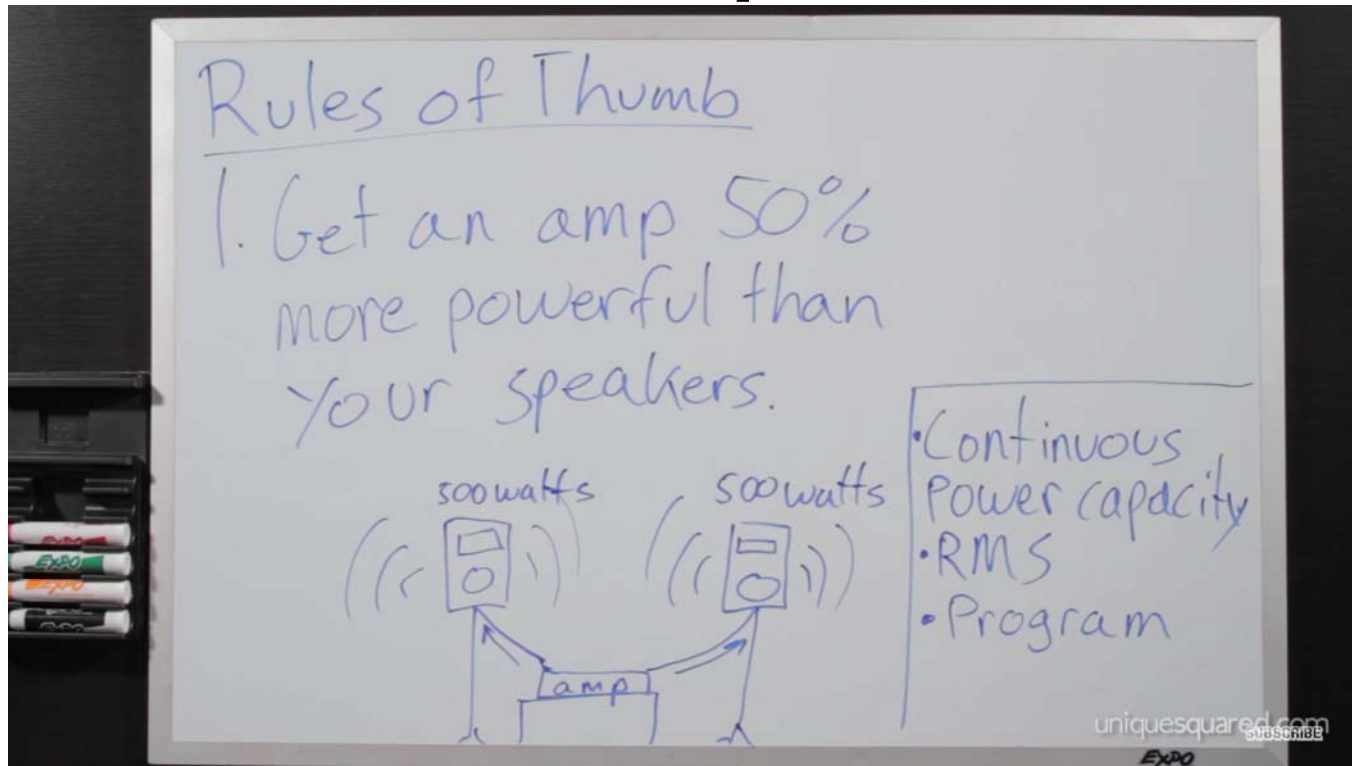 Rules of Thumb
1. Get an amp 50%
more powerful than
your speakers.
500 watts
500 watts
amp
• Continuous
power capacity
• RMS
• Program
EXPO
EXPO
EXPO
uniquesquared.com
SUBSCRIBE
EXPO